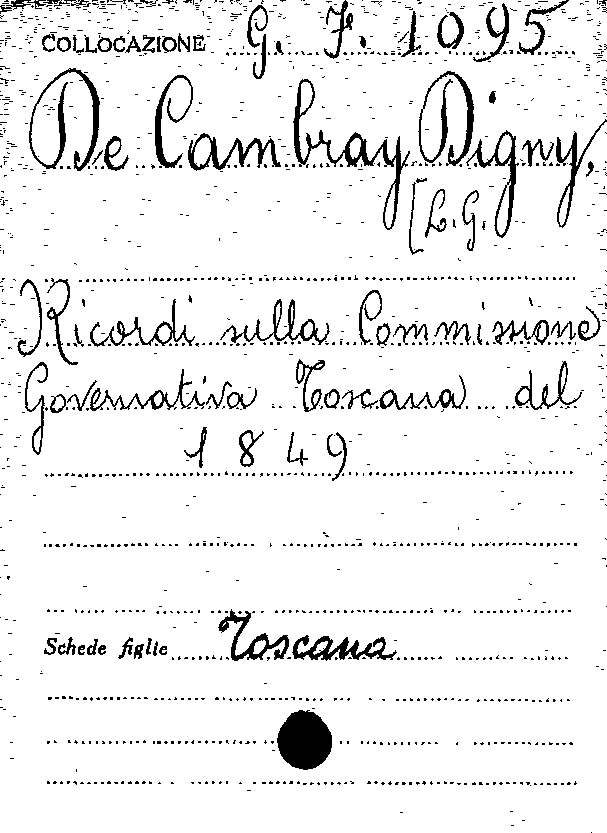 COLLOCAZIONE G. F. 1095
De Cambray Digny,
[L. G.
Ricordi sulla Commissione
Governativa Toscana del
1849
Schede figlie Toscana